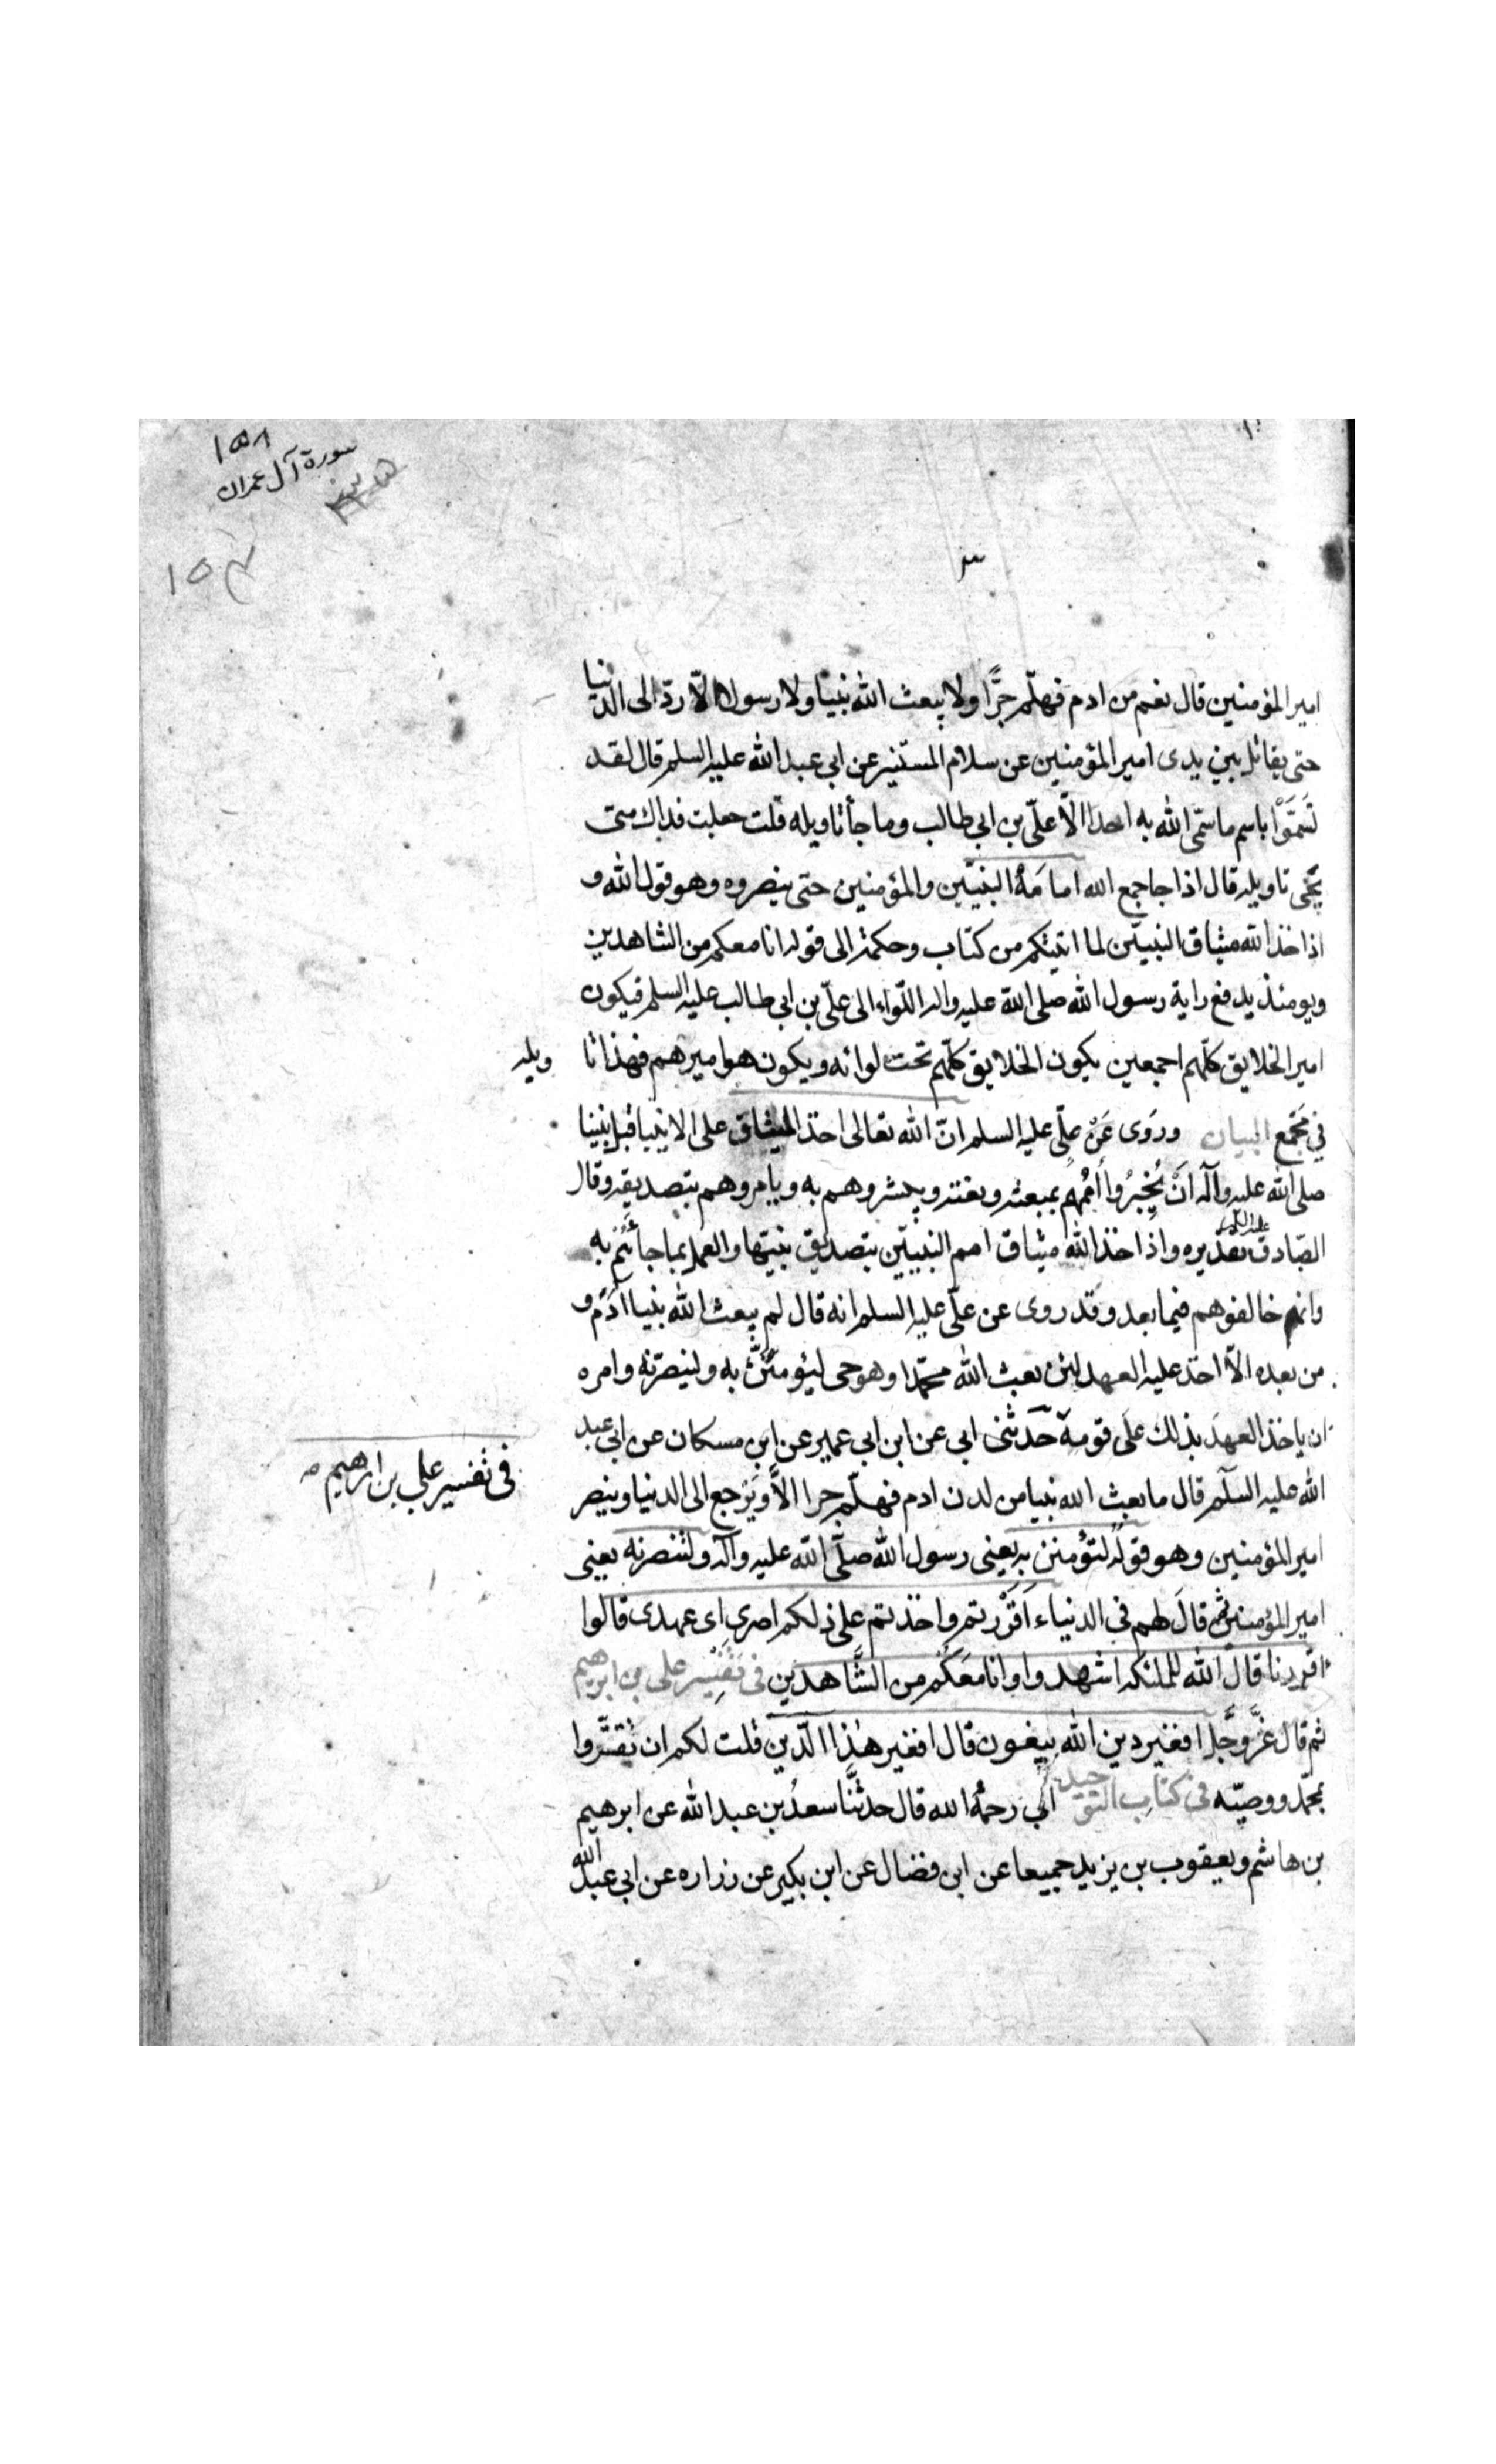 ١٥٨
سورة آل عمران
١٥٣
امير المؤمنين قال نعم من ادم فهلّم جرّا ولا يبعث الله نبيا ولا رسولا الّا ردّ الى الدنيا
حتى يقاتل بين يدى امير المؤمنين عن سلام المستنير عن ابي عبد الله عليه السلم قال لقد
تسمّوا باسم ما سمّى الله به احدا الّا علىّ بن ابي طالب وما جأ تاويله قلت جعلت فداك متى
يجى تاويله قال اذا جا جمع الله امامه النبيّين والمؤمنين حتى ينصروه وهو قول الله و
اذ اخذ الله ميثاق النبيّين لما اتيتكم من كتاب وحكمة الى قوله انا معكم من الشاهدين
ويومئذ يدفع راية رسول الله صلى الله عليه واله اللّواء الى علىّ بن ابي طالب عليه السلم فيكون
امير الخلايق كلّهم اجمعين يكون الخلايق كلّهم تحت لوائه ويكون هو اميرهم فهذا تا ويله
في مجمع البيان وروى عن علّى عليه السلم انّ الله تعالى اخذ الميثاق على الانبيا قبل نبينا
صلى الله عليه وآله ان يخبروا اممهم بمبعثه ونعته ويبشروهم به ويامروهم بتصديقه وقال
الصّادق عليه السلم تقديره واذ اخذ الله ميثاق امم النبيّين بتصديق نبيّها والعمل بما جأئهم به
وانهم خالفوهم فيما بعد وقد روى عن علّى عليه السلم انه قال لم يبعث الله نبيا آدم و
من بعده الّا اخذ عليه العهد لئن بعث الله محمّدا وهو حى ليؤمننّ به ولينصرّنه وامره
ان ياخذ العهد بذلك على قومه حدّثنى ابي عن ابن ابي عمير عن ابن مسكان عن ابي عبد
في تفسير علي بن ابرهيم
الله عليه السلم قال ما بعث الله نبيا من لدن ادم فهلّم جرا الّا ويرجع الى الدنيا وينصر
امير المؤمنين وهو قوله لتؤمنن به يعنى رسول الله صلّى الله عليه وآله ولتنصرنه يعنى
امير المؤمنين ثم قال لهم في الدنياء اقررتم واخذتم على ذلكم اصرى اى عهدى قالوا
اقررنا قال الله للملئكه اشهدوا وانا معكم من الشّاهدين في تفسير على بن ابرهيم
ثم قال عزّ وجلّ افغير دين الله يبغون قال افغير هذا الّذين قلت لكم ان تقتّروا
بمحمّد ووصيّه في كتاب التوحيد ابي رحمه الله قال حدثنا سعد بن عبد الله عن ابرهيم
بن هاشم ويعقوب بن يزيد جميعا عن ابن فضال عن ابن بكير عن زراره عن ابي عبد الله